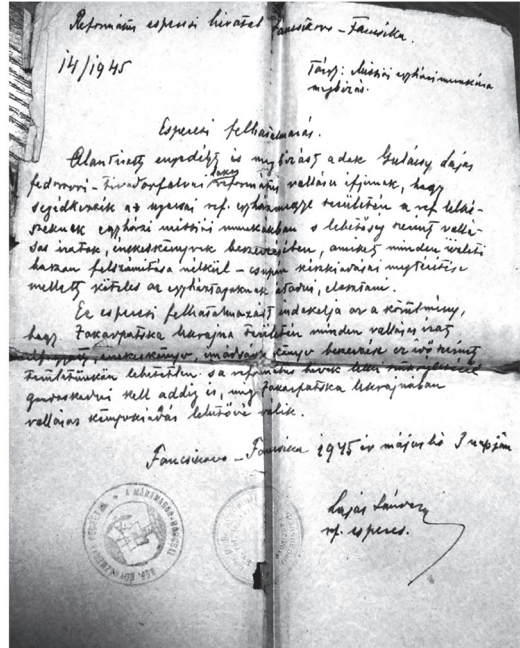 Református esperesi hivatal Fancsikovo – Fancsika.
14/1945
Tárgy: Missziói egyházi munkára
megbízás.
Esperesi felhatalmazás.
Alantirott engedélyt és megbízást adok Gulácsy Lajos
fedorovoi – tivadorfalvai lakos református vallásu ifjunak, hogy
segédkezzék az ugocsai ref. egyházmegye területén a ref. lelké-
szeknek egyházi missziói munkákban s lehetőség szerint vallá-
sos iratok, énekeskönyvek beszerzésében, amiket minden üzleti
haszon felszámitása nélkül – csupán kézikiadásai megtéritése
mellett köteles az egyháztagoknak átadni, elosztani.
Ez esperesi felhatalmazást indokolja az a körülmény,
hogy Zakarpatska Ukrajna területén minden vallásos irat
énekeskönyv, imádságos könyv beszerzése ez idő szerint
területünkön lehetetlen s a református hivek lelki
gondoskodni kell addig is, mig Zakarpatska Ukrajnában
vallásos könyvkiadás lehetővé válik.
Fancsikovo – Fancsika 1945 év május hó 3 napján
Lajos Sándor
ref. esperes.